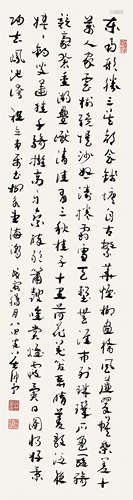 東南形勝三吳都會錢塘自古繁華煙柳畫橋風簾翠幕參差十
萬人家雲樹繞堤沙怒濤卷霜雪天塹無涯市列珠璣戶盈羅綺
競豪奢重湖疊巘清嘉有三秋桂子十里荷花羌管弄晴菱歌泛夜
嬉嬉釣叟蓮娃千騎擁高牙乘醉聽簫鼓吟賞煙霞異日圖將好景
歸去鳳池誇 柳永望海潮